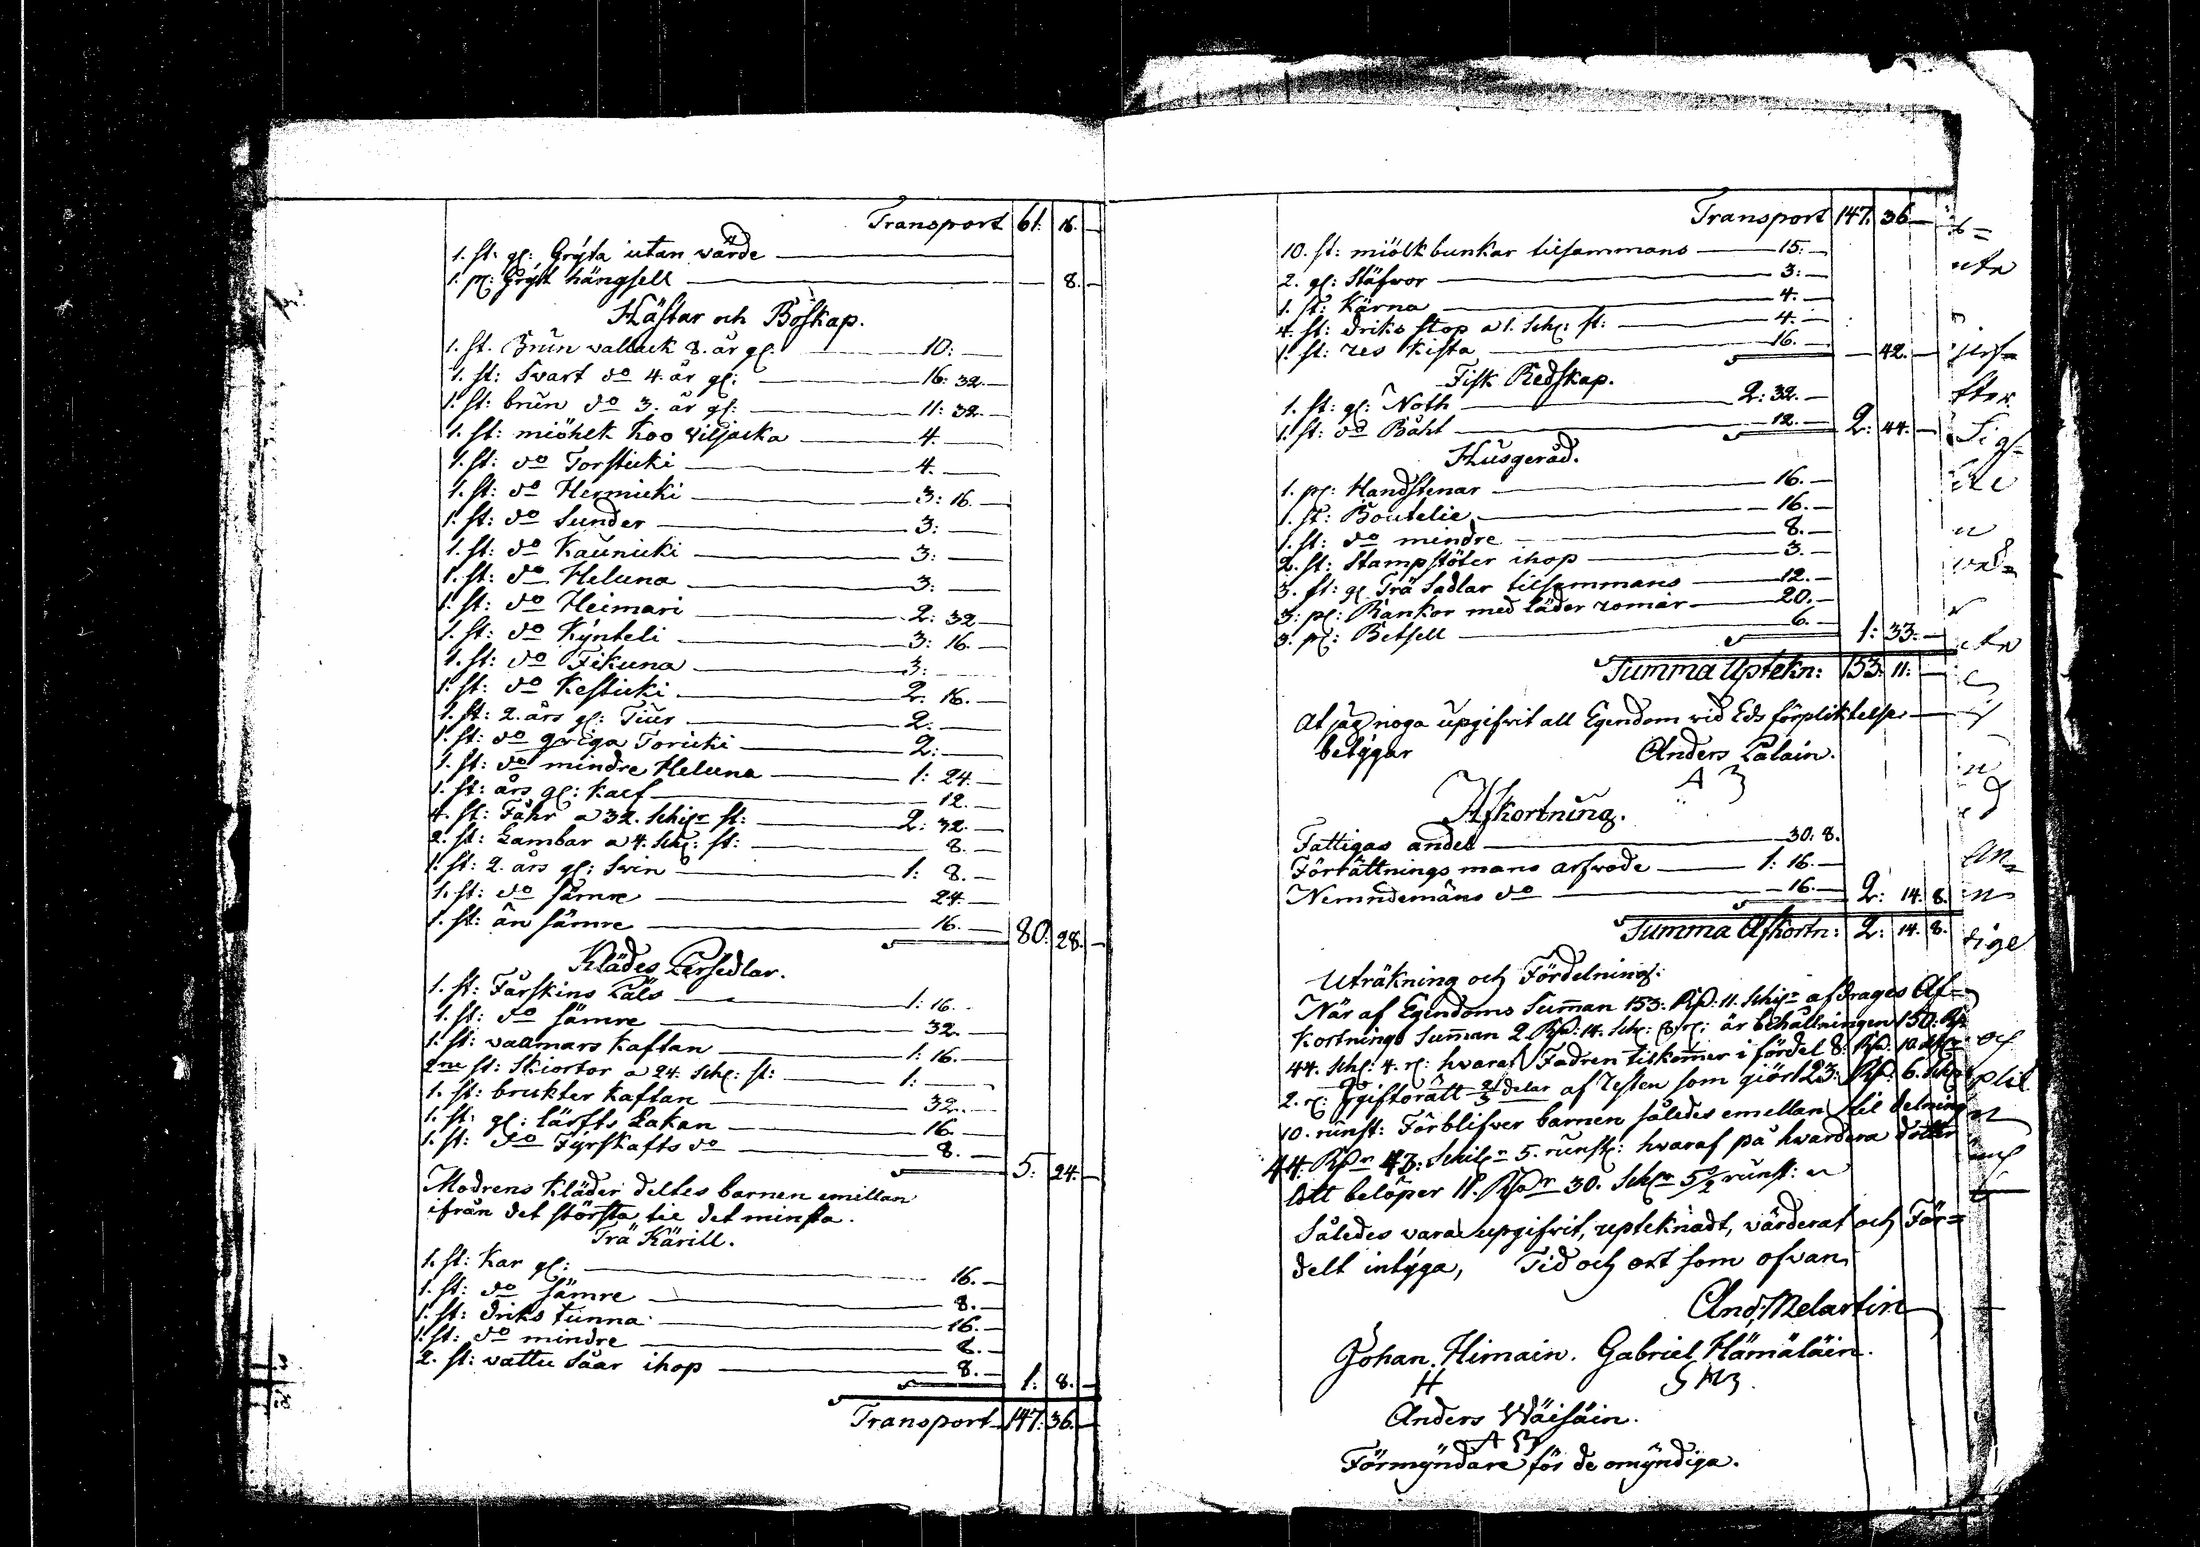 Transport 61: 16. —
1. st: gl: Grÿta utan värde —
1. pr: Grÿt hängsell — — 8. —
Hästar och Boskap.
1. st. Brun vallack 8. år gl: — 10: —
1. st: Svart do 4. år gl: — 16: 32. —
1. st: brun do 3. år gl: — 11: 32. —
1. st: miöhlk Koo Viljacka — 4. —
1. st: do Torsticki — 4. —
1. st: do Hermicki — 3: 16. —
1. st: do Sunder — 3: —
1. st: do Kaunicki — 3: —
1. st: do Heluna — 3: —
1. st: do Heimari — 2: 32 —
1. st: do Kÿnteli — 3: 16. —
1. st: do Fikuna — 3: —
1. st: do Kesticki — 2: 16. —
1. st: 2. års gl: Tiur — 2: —
1. st: do qviga Toricki — 2: —
1. st: do mindre Heluna — 1: 24. —
1. st: års gl: Kalf — 12. —
4. st: Fåhr a 32. schgr st: — 2: 32. —
2. st: Lambar a 4. sch: st: — 8. —
1. st: 2. års gl: Svin — 1: 8. —
1. st: do sämre — 24. —
1. st: än sämre — 16. — 80: 28. —
Klädes Persedlar.
1. st: Fårskins Päls — 1: 16. —
1. st: do sämre — 32. —
1. st: vallmars Kaftan — 1: 16. —
2ne st: Skiortor a 24. sch: st: — 1: —
1. st: brukter Kaftan — 32. —
1. st: gl: lärfts Lakan — 16. —
1. st: do Fÿrskafts do — 8. — 5: 24. —
Modrens Kläder deltes barnen emellan
ifrån det största til det minsta.
Trä Kärill.
1. st: Kar gl: — 16. —
1. st: do sämre — 8. —
1. st: driks tunna — 16. —
1. st: do mindre — 8. —
2. st: vattu Såar ihop — 8. — 1: 8. —
Transport 147: 36. —
Transport 147: 36 —
10. st: miölk bunkar tilsammans — 15: —
2. gl: Stäfvor — 3: —
1. st: Kärna — 4. —
4. st: driks stop a 1. sch: st: — 4. —
1. st: res Kista — 16. — — 42. —
Fisk Redskap.
1. st: gl: Noth — 2: 32. —
1. st: do Båht — 12. — 2: 44. —
Husgeråd.
1. pr: Handstenar — 16. —
1. st: Boutelie — 16. —
1. st: do mindre — 8. —
2. st: Stampstöter ihop — 3. —
3. st: gl Trä Sadlar tilsammans — 12. —
3: pr: Rankor med läder romar — 20. —
3. pr: Betsell — 6. — 1: 33: —
Summa Uptekn: 153: 11: —
At jag noga upgifvit all Egendom vid Eds förpliktelse
betÿgar Anders Palain.
A
Afkortning.
Fattigas andel — 30. 8.
Förrättnings mans arfvode — 1: 16. —
Nemndemäns do — 16. — 2: 14. 8.
Summa Afkortn: 2: 14. 8.
Uträkning och Fördelning:
När af Egendoms Sum̅an 153: Rd: 11. schgr afdrages Af-
kortnings Sum̅an 2. Rd: 14. sch: 8. r: är behållningen 150: Rd:
44. sch: 4. r: hvaraf Fadren tilkom̅er i fördel 8: Rd: 10 sch
2. r: giftorätt 2/3 delar af resten som giör 123: Rd: 6. sch
10. runst: Förblifver barnen således emellan til delning
44. Rdr 43: schilr 5. runst: hvaraf på hvardera dotter
lott belöper 11. Rdr 30. schr 5 runst:
Således vara upgifvit, upteknadt, värderat och För-
delt intÿga, Tid och ort som ofvan
And: Melartin
Johan Himain. Gabriel Hämäläin.
H
Anders Wäisäin.
A
Förmÿndare för de omÿndiga.